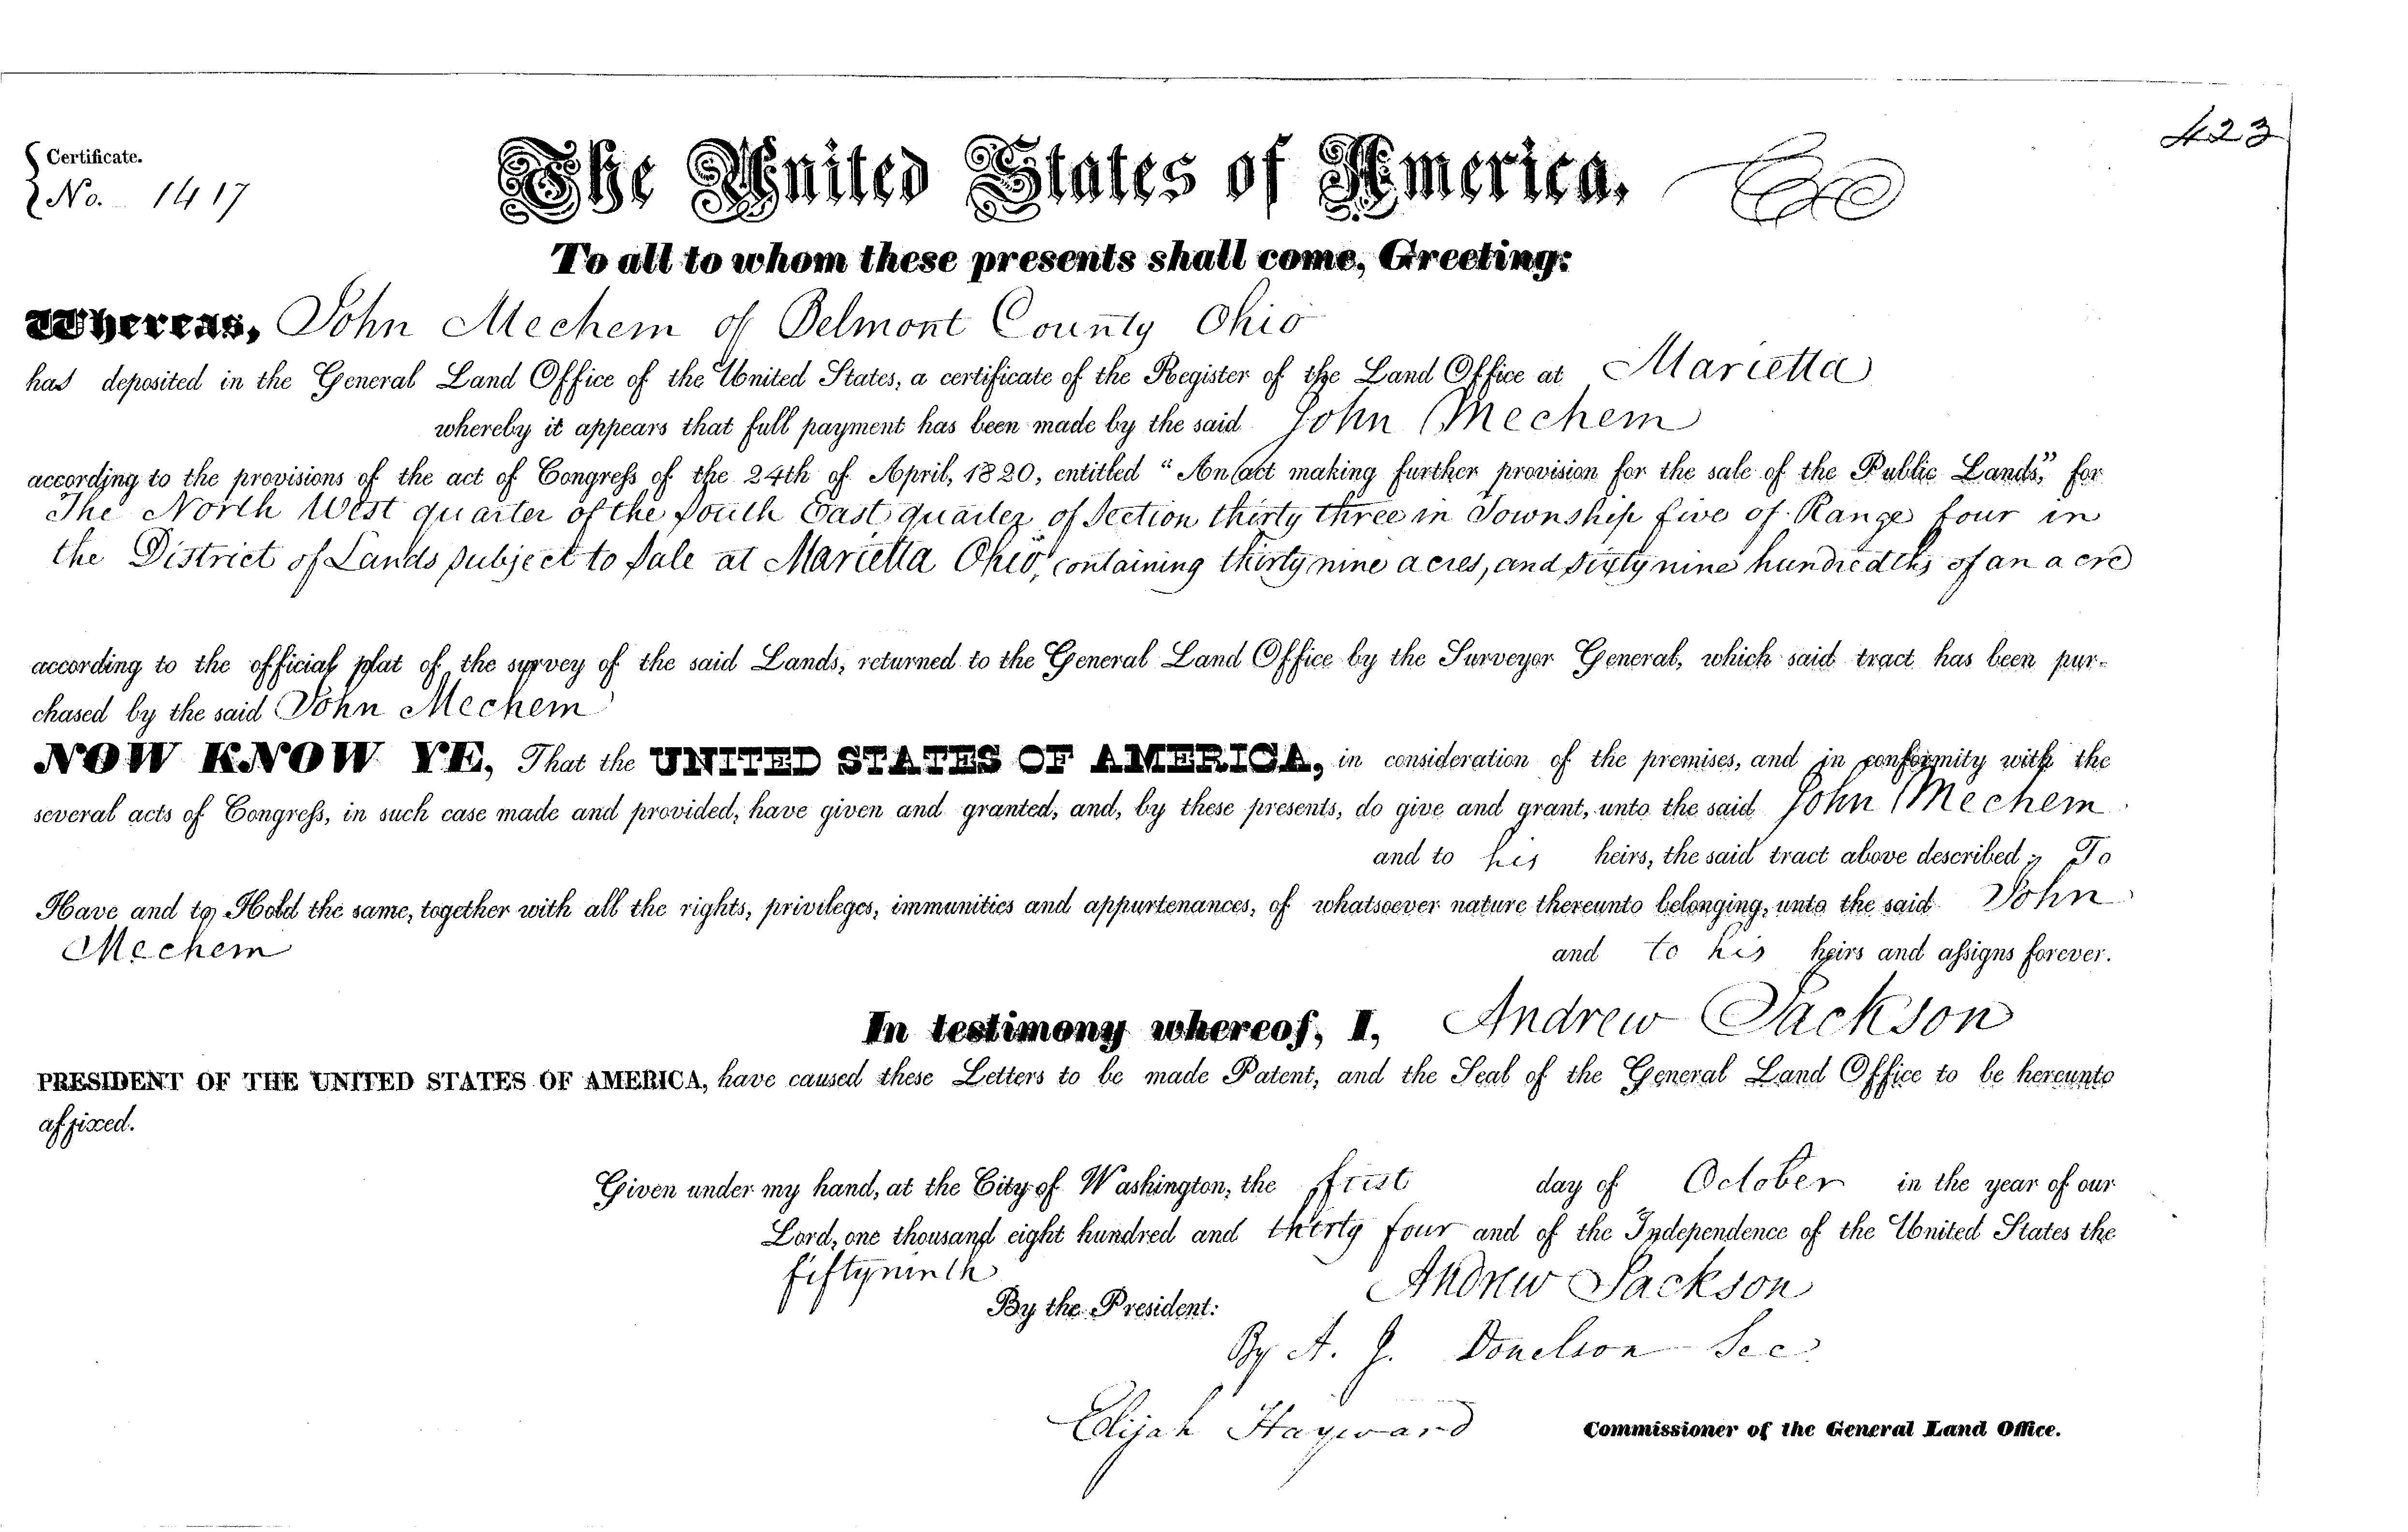 423
Certificate.
No. 1417
The United States of America,
To all to whom these presents shall come, Greeting:
Whereas, John Mechem of Belmont County Ohio
has deposited in the General Land Office of the United States, a certificate of the Register of the Land Office at Marietta
whereby it appears that full payment has been made by the said John Mechem
according to the provisions of the act of Congress of the 24th of April, 1820, entitled "An act making further provision for the sale of the Public Lands," for
The North West quarter of the South East quarter of Section thirty three in Township five of Range four in
the District of Lands subject to sale at Marietta Ohio, containing thirty nine acres, and sixty nine hundredths of an acre
according to the official plat of the survey of the said Lands, returned to the General Land Office by the Surveyor General, which said tract has been pur-
chased by the said John Mechem
NOW KNOW YE, That the UNITED STATES OF AMERICA, in consideration of the premises, and in conformity with the
several acts of Congress, in such case made and provided, have given and granted, and, by these presents, do give and grant, unto the said John Mechem
and to his heirs, the said tract above described; To
Have and to Hold the same, together with all the rights, privileges, immunities and appurtenances, of whatsoever nature thereunto belonging, unto the said John
Mechem and to his heirs and assigns forever.
In testimony whereof, I, Andrew Jackson
PRESIDENT OF THE UNITED STATES OF AMERICA, have caused these Letters to be made Patent, and the Seal of the General Land Office to be hereunto
affixed.
Given under my hand, at the City of Washington, the first day of October in the year of our
Lord, one thousand eight hundred and thirty four and of the Independence of the United States the
fiftyninth
Andrew Jackson
By the President:
By A. J. Donelson Sec.
Elijah Hayward Commissioner of the General Land Office.